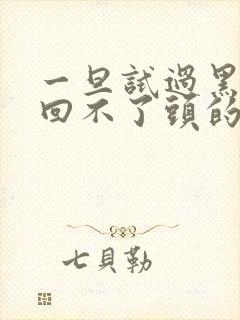 一旦試過黑
回不了頭的
七貝勒